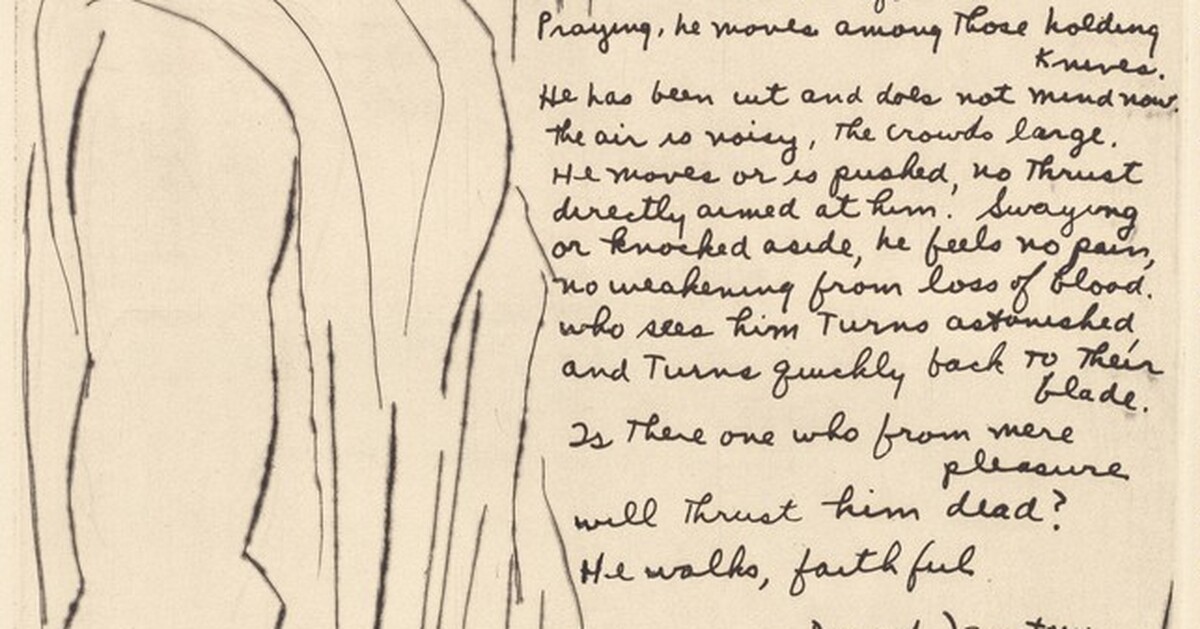 Praying, he moves among Those holding
Knives.
He has been cut and does not mind now.
The air is noisy, The crowds large.
He moves or is pushed, no Thrust
directly aimed at him. Swaying
or knocked aside, he feels no pain,
no weakening from loss of blood.
who sees him Turns astonished,
and Turns quickly back To Their
blade.
Is There one who from mere
pleasure
will Thrust him dead?
He walks, faithful